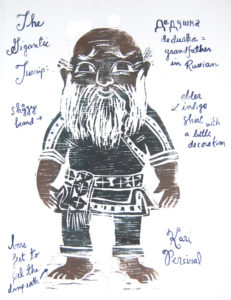 The
Gigantic
Turnip-
Shaggy
beard →
bare
feet to
feel the
damp earth
Дедушка
dedushka =
grandfather
in Russian
indigo
shirt with
a little
decoration
Kari
Percival